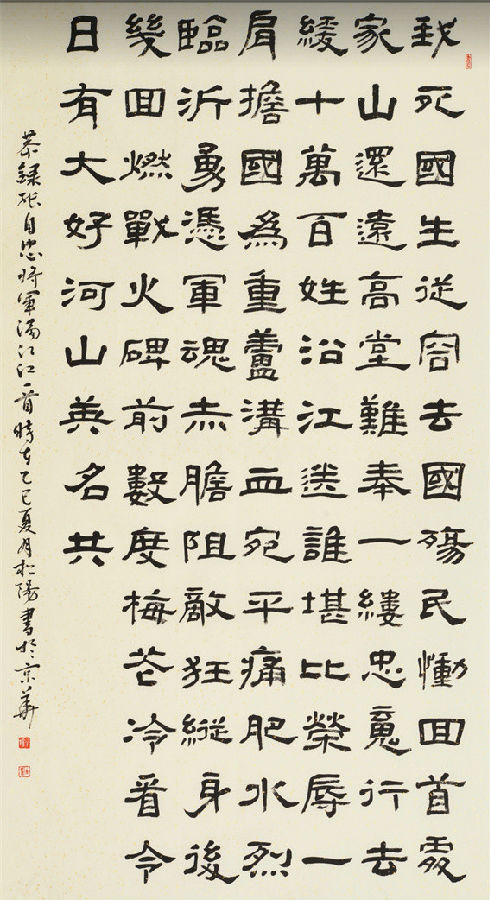 我死國生從容去國殤民慟回首處
家山還遠高堂難奉一縷忠魂行去
緩十萬百姓沿江送誰堪比榮辱一
肩擔國為重蘆溝血宛平痛肥水烈
臨沂勇憑軍魂赤膽阻敵狂縱身後
幾回燃戰火碑前數度梅花冷看今
日有大好河山美名共
恭錄張自忠將軍滿江紅一首時在乙巳夏月松陽書於京華